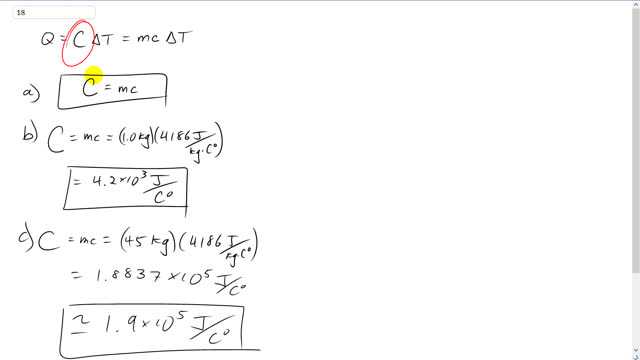 18
Q = C ΔT = mc ΔT
a) C = mc
b) C = mc = (1.0 kg)(4186 J/kg·C°)
= 4.2×10³ J/C°
c) C = mc = (45 kg)(4186 J/kg·C°)
= 1.8837 ×10⁵ J/C°
≃ 1.9×10⁵ J/C°